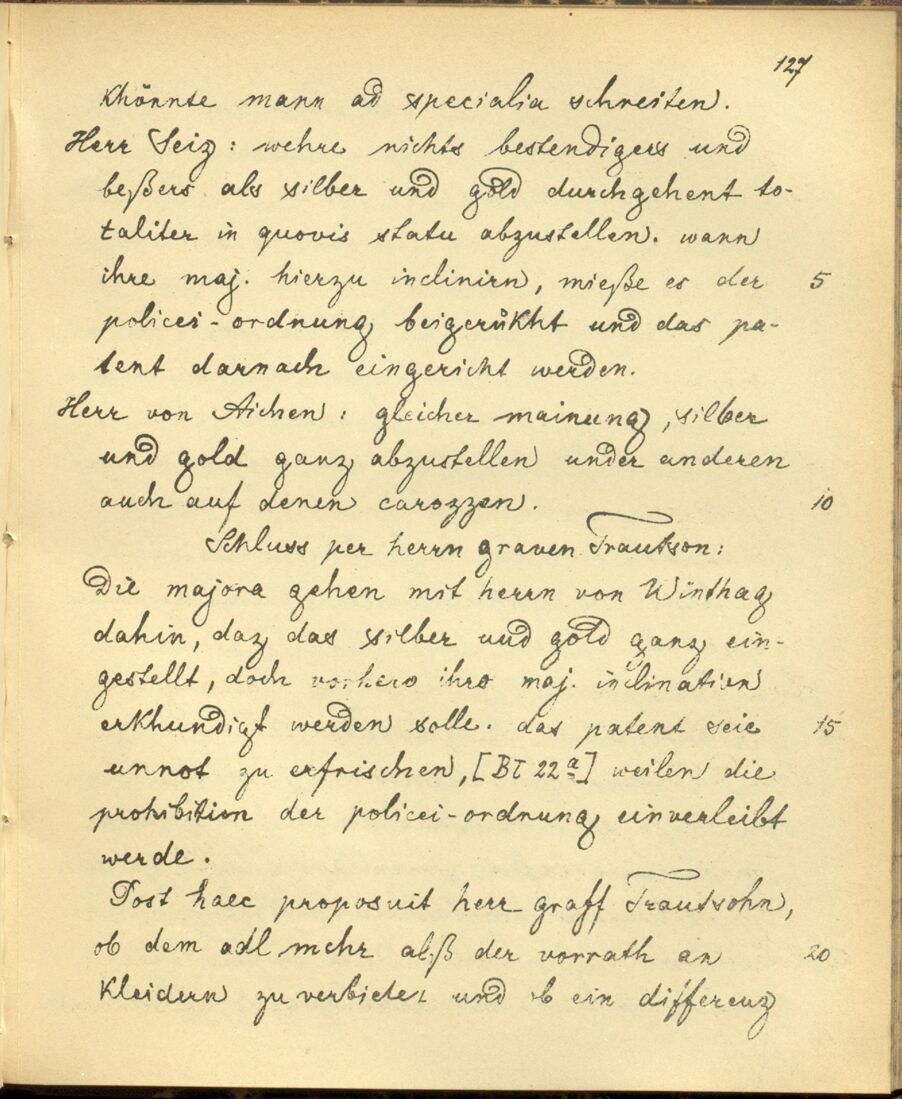 127
khönnte mann ad specialia schreiten.
Herr Seiz: wehre nichts bestendigers und
beßers als silber und gold durchgehent to-
taliter in quovis statu abzustellen. wann
ihre maj. hierzu inclinirn, mieße es der 5
policei-ordnung beigerükht und das pa-
tent darnach eingericht werden.
Herr von Aichen: gleicher mainung, silber
und gold ganz abzustellen under anderen
auch auf denen carozzen. 10
Schluss per herrn graven Trautson:
Die majora gehen mit herrn von Winthag
dahin, daz das silber und gold ganz ein-
gestellt, doch vorhero ihro maj. inclination
erkhundigt werden solle. das patent seie 15
unnot zu erfrischen, [Bl 22a] weilen die
prohibition der policei-ordnung einverleibt
werde.
Post haec proposuit herr graff Trautsohn,
ob dem adl mehr alß der vorrath an 20
kleidern zu verbieten und ob ein differenz